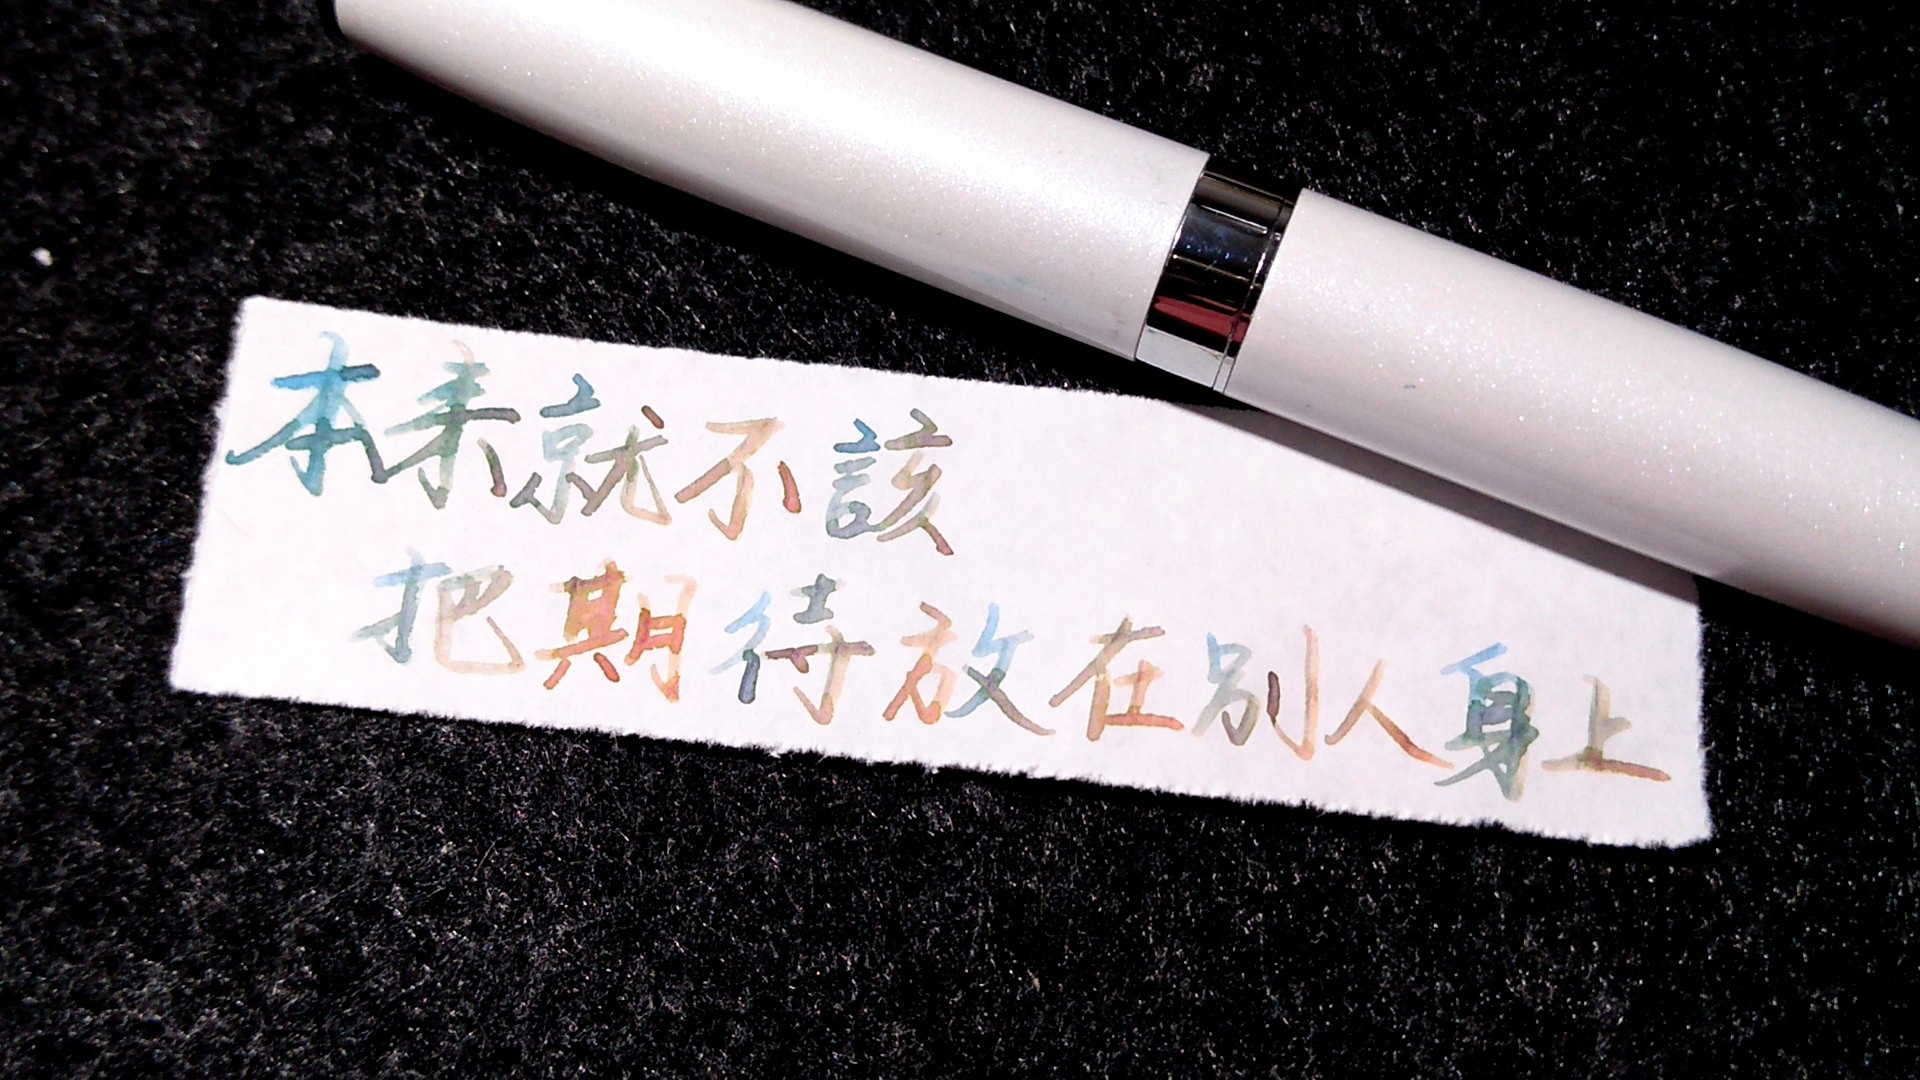 本来就不該
把期待放在別人身上